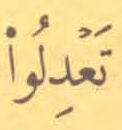 تَعۡدِلُواْ